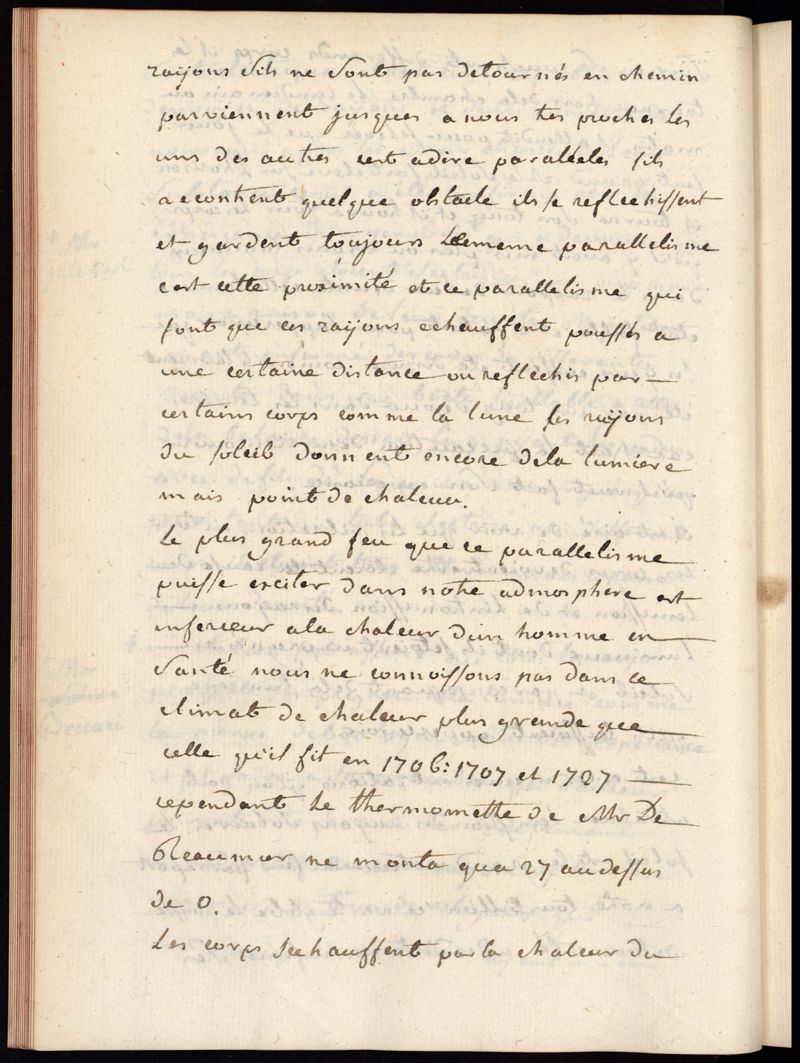 raijons s'ils ne sont pas detournés en chemin
parviennent jusques a nous tes proches les
uns des autres cest adire paralleles s'ils
recontient quelque obstacle ils se reflechissent
et gardent toujours lememe parallelisme
c'est cette proximité et ce parallelisme qui
font que ces raijons echauffent poussés a
une certaine distance ou reflechis par
certains corps comme la lune les raijons
du soleil donnent encore dela lumiere
mais point de chaleur.
Le plus grand feu que ce parallelisme
puisse exciter dans notre admosphere est
inferieur ala chaleur dun homme en
santé nous ne connoissons pas dans ce
climat de chaleur plus grande que
celle qu'il fit en 1706: 1707 et 1727
cependant le thermomettre de Mr De
Reaumur ne monta qua 27 audessus
de 0.
Les corps sechauffent par la chaleur du